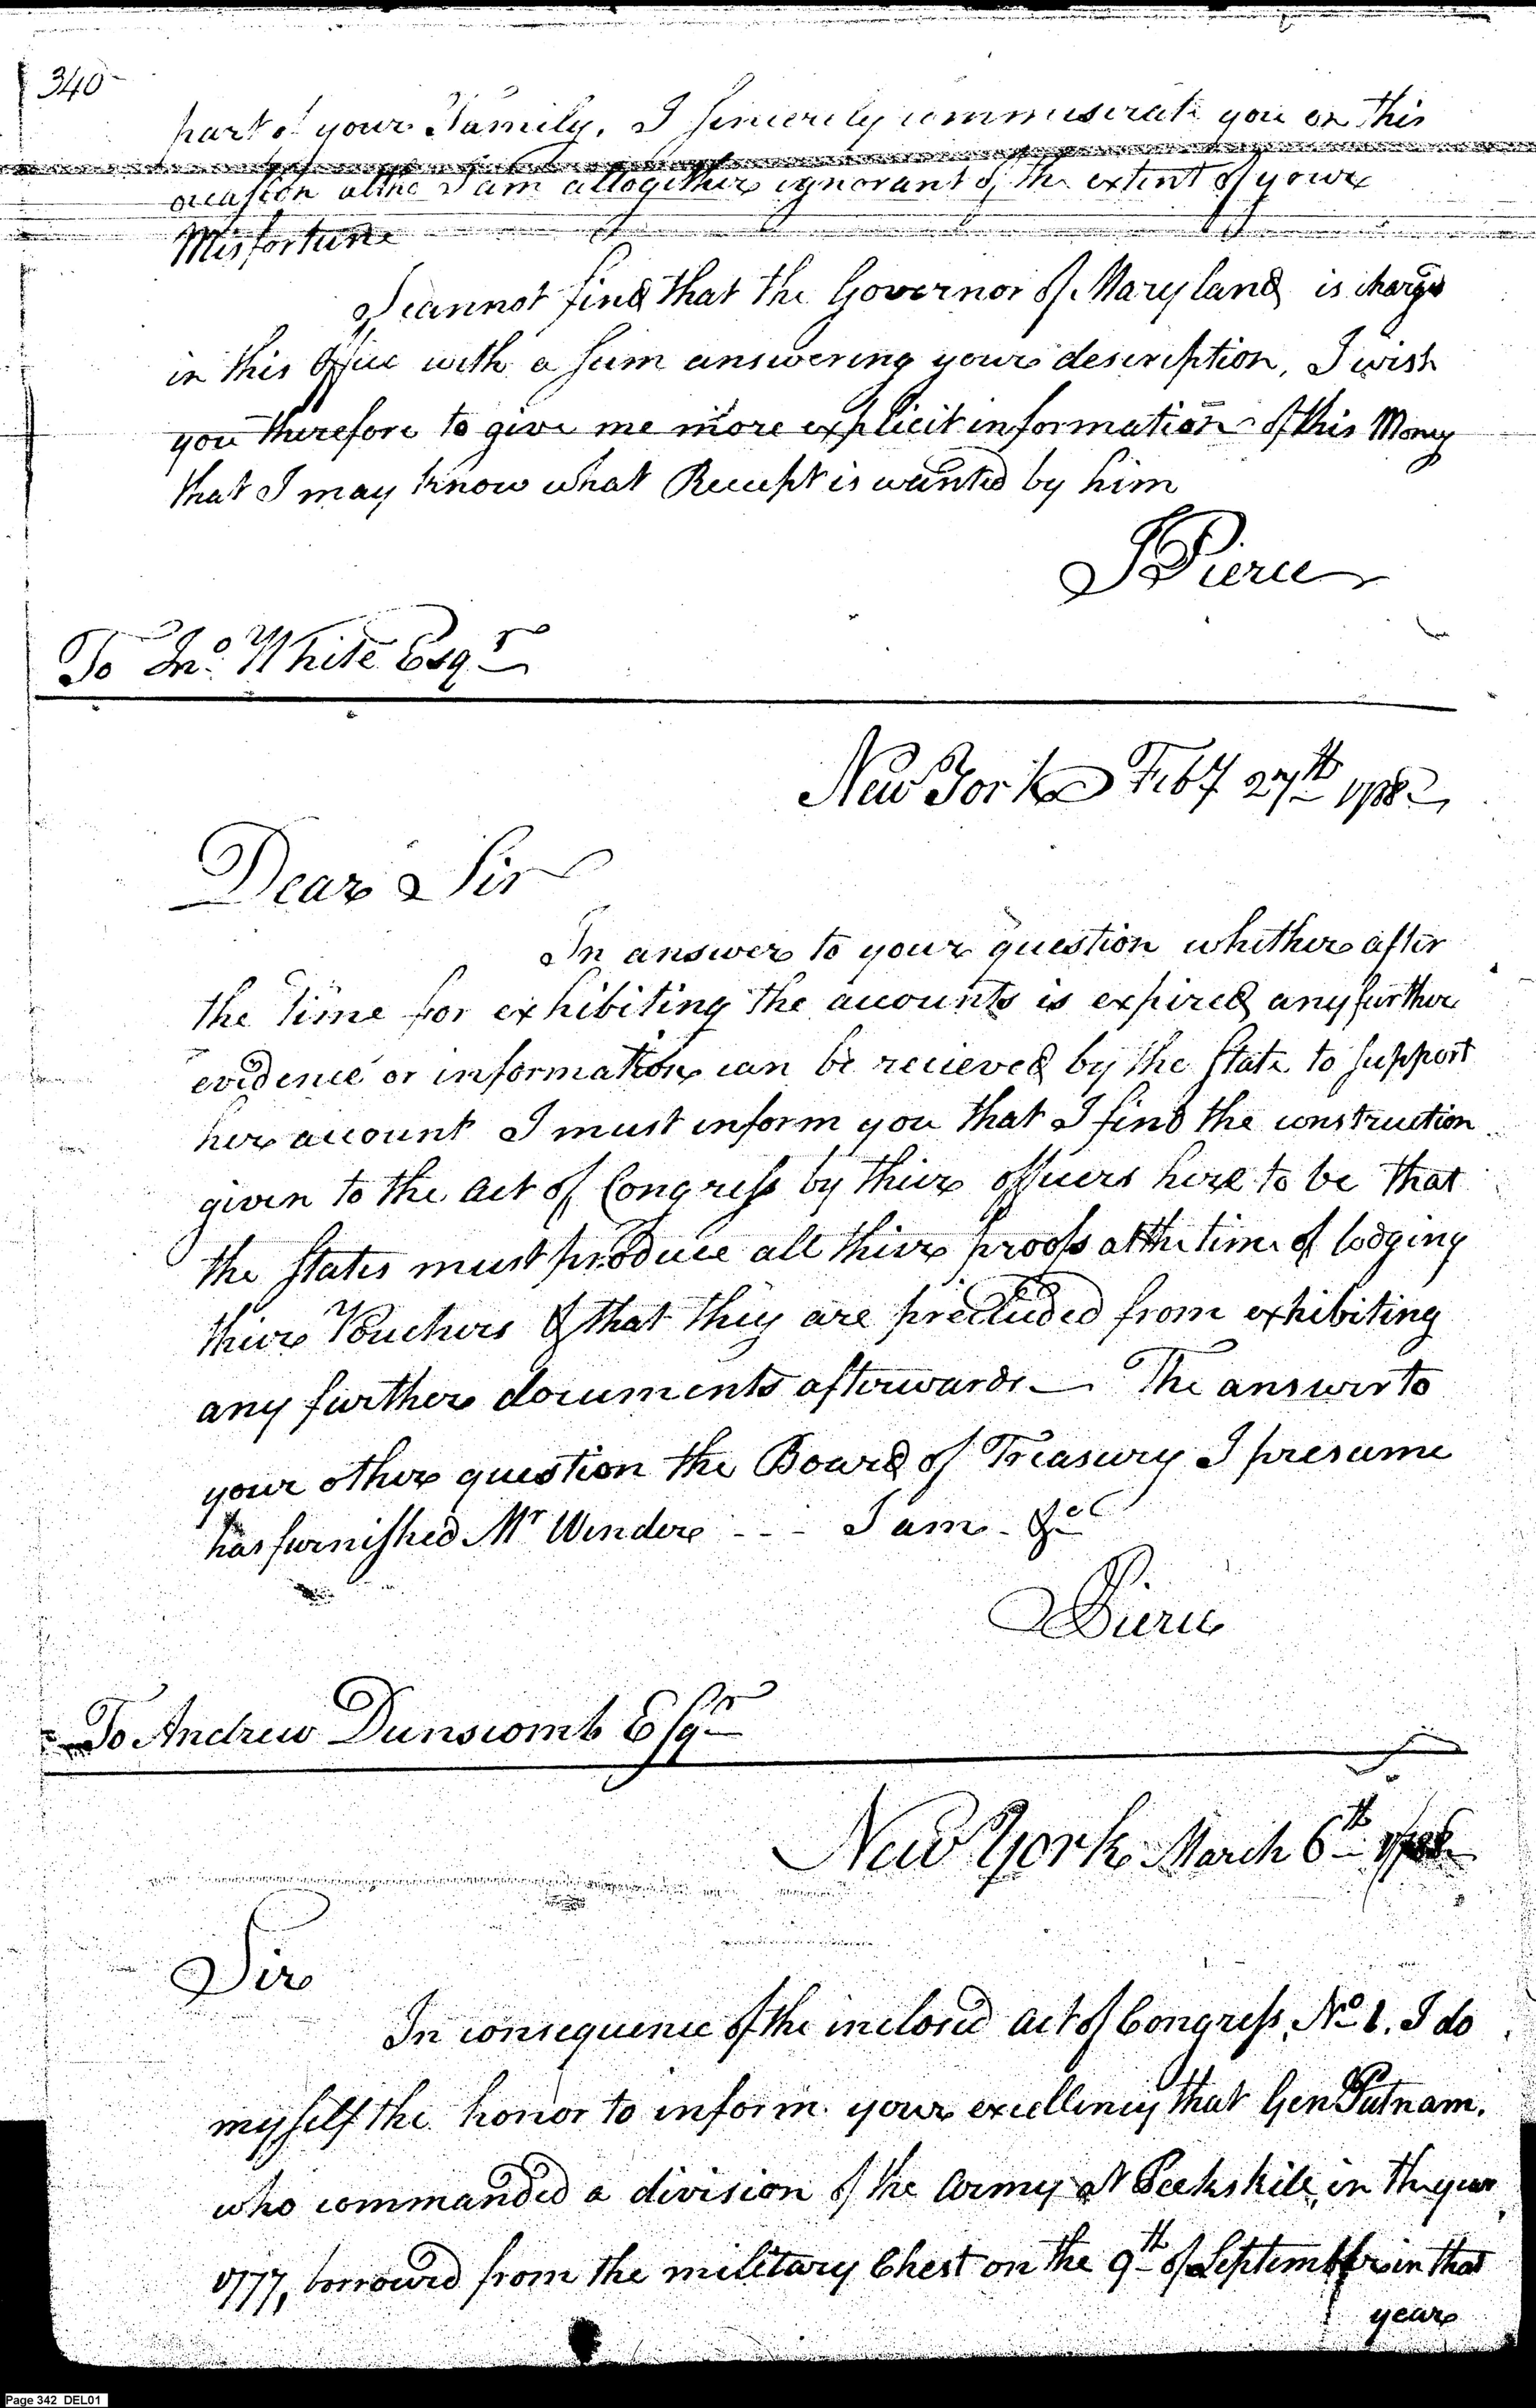 340
part of your Family. I sincerely commiserate you on this
occasion altho I am altogether ignorant of the extent of your
Misfortune
I cannot find that the Governor of Maryland is charged
in this Office with a sum answering your description, I wish
you therefore to give me more explicit information of this Money
that I may know what Receipt is wanted by him
J Pierce
To Jno. White Esqr
New York Feby 27th 1788
Dear Sir
In answer to your question whether after
the time for exhibiting the accounts is expired any further
evidence or information can be recieved by the State to support
her account I must inform you that I find the construction
given to the act of Congress by thier officers here to be that
the States must produce all thier proofs at the time of lodging
thier Vouchers & that they are precluded from exhibiting
any further documents afterwards — The answer to
your other question the Board of Treasury I presume
has furnished Mr Winder - - - I am &c
J Pierce
To Andrew Dunscomb Esqr
New York March 6th 1788
Sir
In consequence of the inclosed act of Congress, No. 1. I do
myself the honor to inform your excellency that Gen Putnam.
who commanded a division of the Army at Peekskill, in the year
1777, borrowed from the military Chest on the 9th of September in that
year
Page 342 DEL01